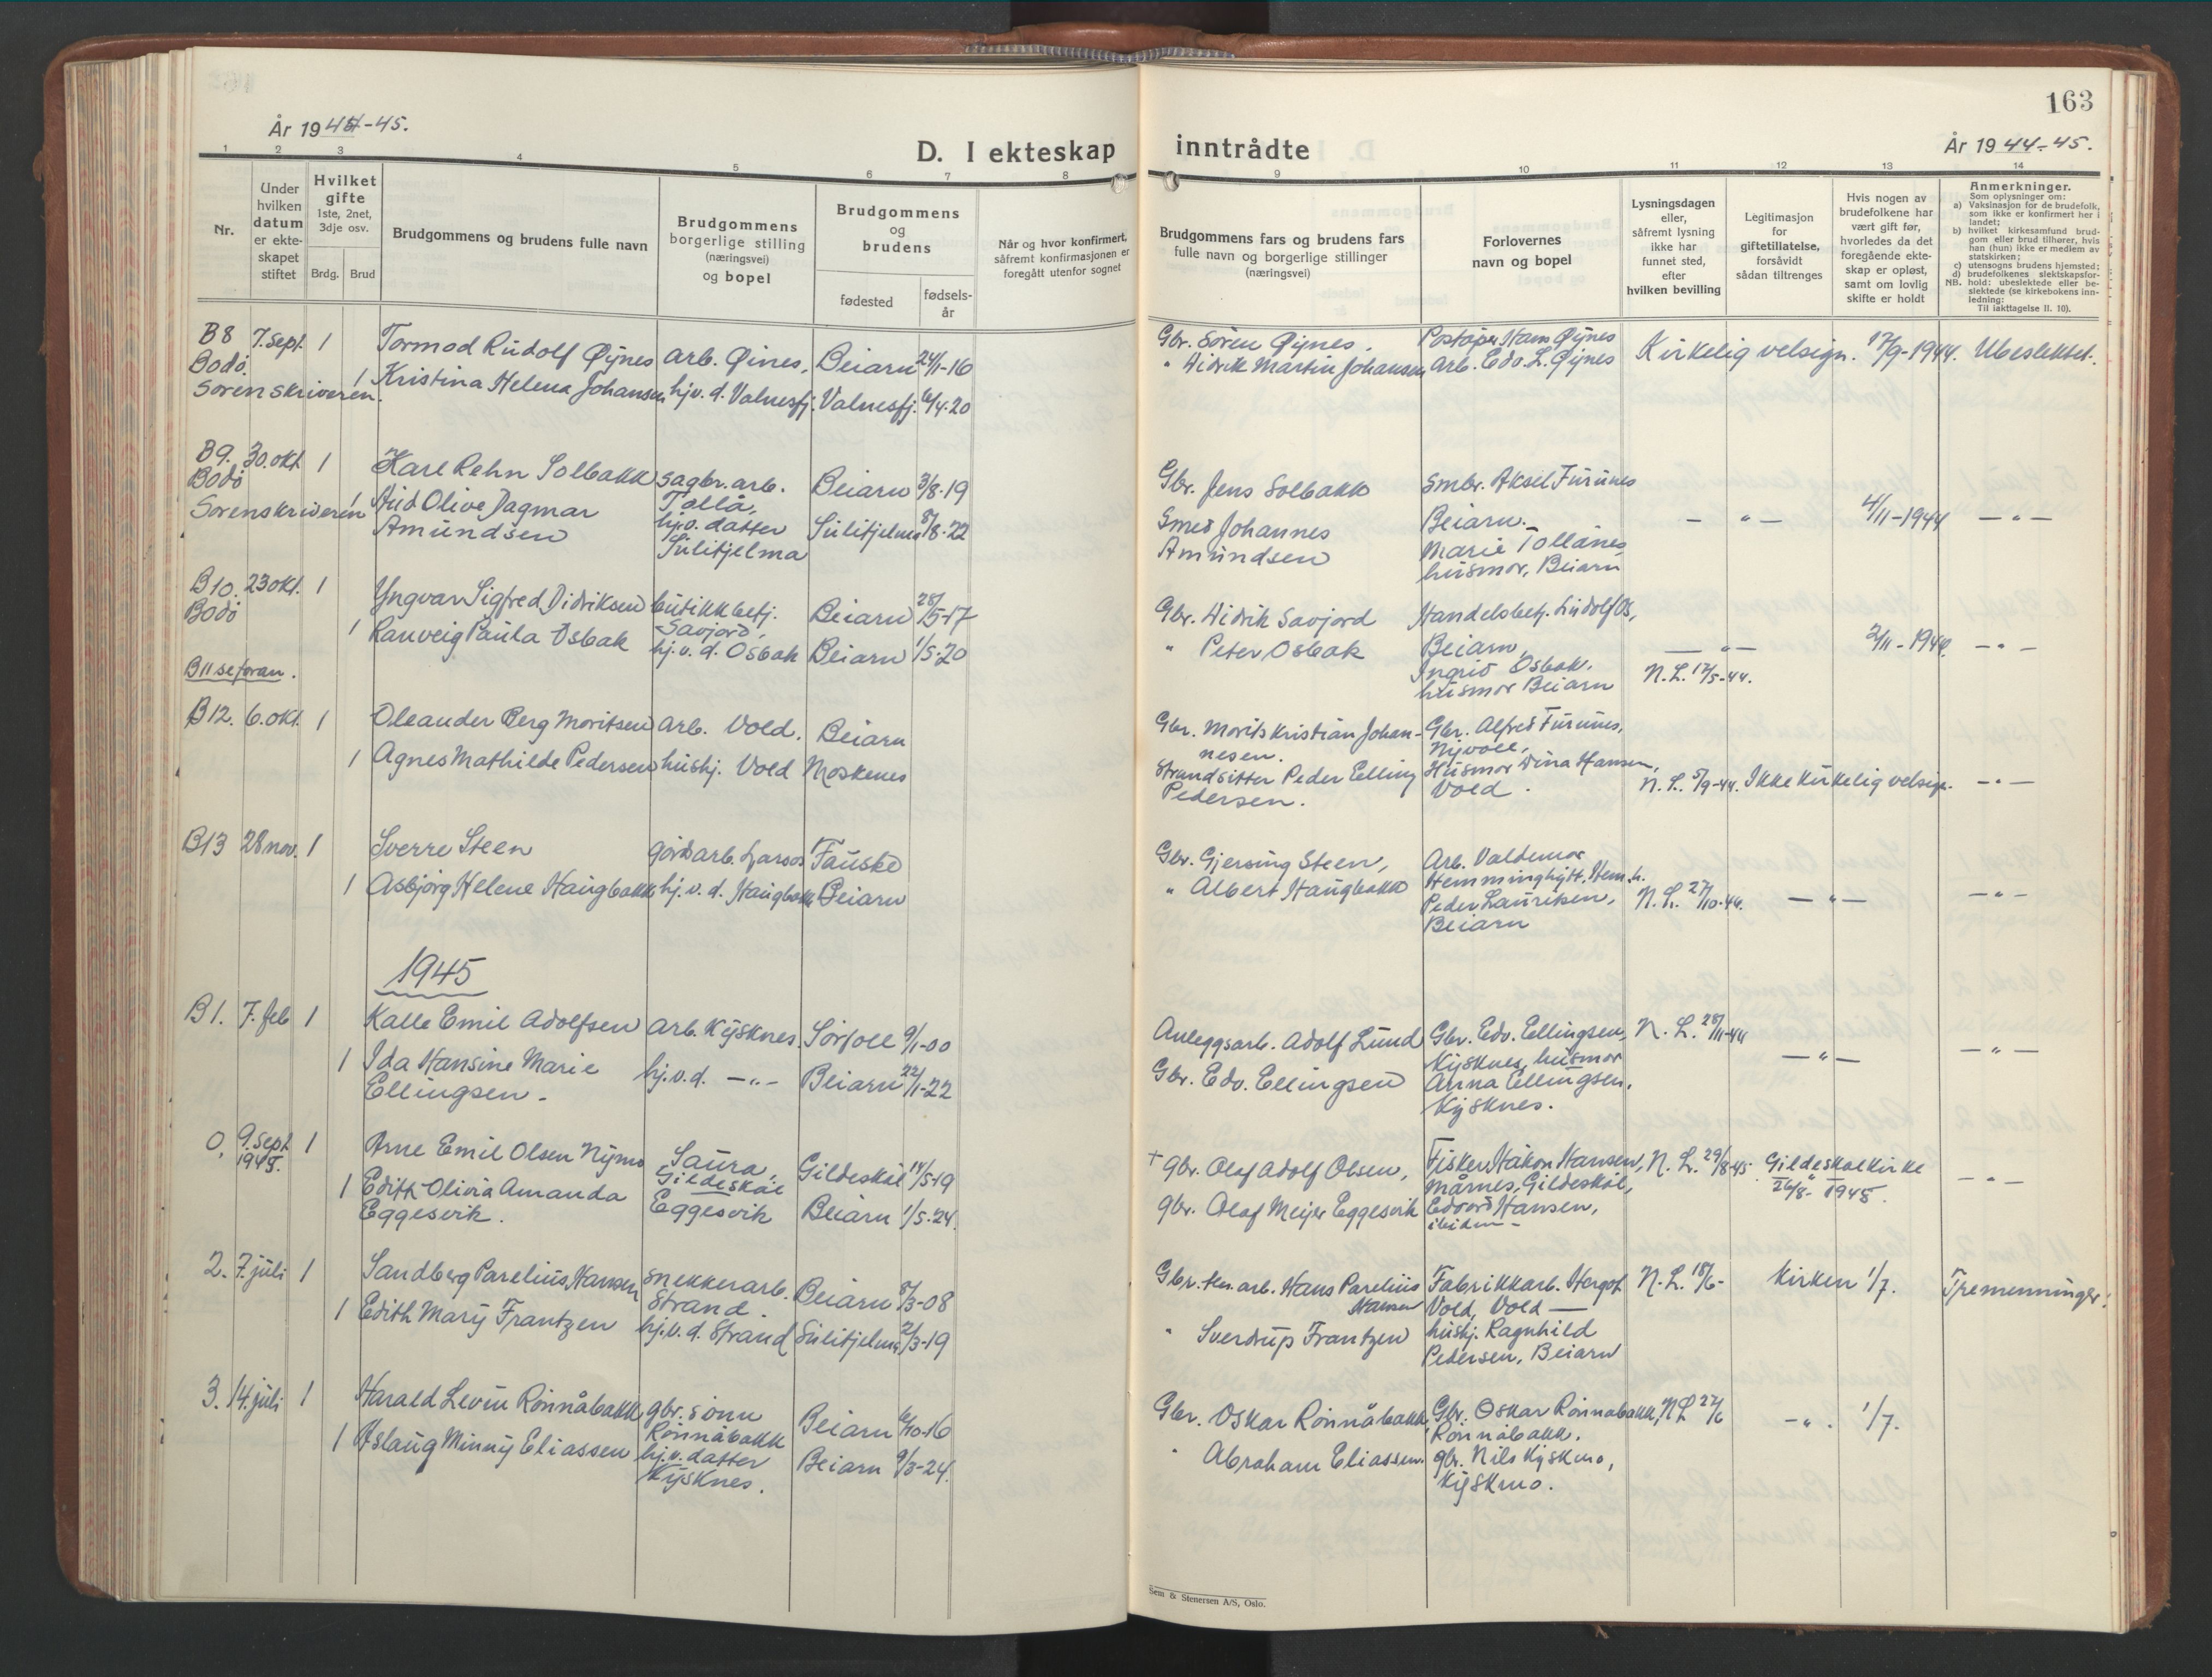 163
År 1944-45.
D. I ekteskap inntrådte
År 1944-45.
1 2 3 4 5 6 7 8 9 10 11 12 13 14
Nr.
Under hvilken datum er ekteskapet stiftet
Hvilket gifte
1ste, 2net, 3dje osv.
Brdg. Brud
Brudgommens og brudens fulle navn
Brudgommens borgerlige stilling (næringsvei) og bopel
Brudgommens og brudens
fødested
fødselsår
Når og hvor konfirmert, såfremt konfirmasjonen er foregått utenfor sognet
Brudgommens fars og brudens fars fulle navn og borgerlige stillinger (næringsvei)
Forlovernes navn og bopel
Lysningsdagen eller, såfremt lysning ikke har funnet sted, efter hvilken bevilling
Legitimasjon for giftetillatelse, forsåvidt sådan tiltrenges
Hvis nogen av brudefolkene har vært gift før, hvorledes da det foregående ekteskap er opløst, samt om lovlig skifte er holdt
Anmerkninger.
Som oplysninger om:
a) Vaksinasjon for de brudefolk, som ikke er konfirmert her i landet;
b) hvilket kirkesamfund brudgom eller brud tilhører, hvis han (hun) ikke er medlem av statskirken;
c) utensogns brudens hjemsted;
d) brudefolkenes slektskapsforhold: ubeslektede eller beslektede (se kirkebokens innledning:
NB. Til iakttagelse II. 10).
B8 7. sept. 1 Tormod Rudolf Øynes arb. Øines, Beiarn 24/11-16 Gbr. Sören Øynes. Poståpn. Hans Øynes Kirkelig velsign. 17/9-1944. Ubeslektet.
Bodø. Sorenskriveren. 1 Kristina Helena Johansen hjv. d. Valnesfj. Valnesfj. 6/4-20 " Didrik Martin Johansen Arb. Edv. L. Øynes
B9. 30. okt. 1 Karl Rehn Solbakk sagbr. arb. Tollå, Beiarn 3/8-19 Gbr. Jens Solbakk Smbr. Aksel Furunes Beiarn.
Bodø Sorenskriveren 1 Aud Olive Dagmar Amundsen hj.v. datter Sulitjelma Sulitjelma 8/8-22 Smed Johannes Amundsen Marie Tollånes husmor, Beiarn — " — 4/11-1944 — " —
B10. 23 okt. 1 Yngvar Sigfred Didriksen butikkbetj. Savjord, Beiarn 28/5-17 Gbr. Didrik Savjord Handelsbetj. Ludolf Os, Beiarn,
Bodø 1 Ranveig Paula Osbak hj.v. d. Osbak Beiarn 1/5-20 " Peter Osbak Ingrid Osbak, husmor Beiarn — " — 2/11-1944. — " —
B11 se foran. N.L. 17/5-44.
B12. 6. okt. 1 Oleander Berg Moritsen arb. Vold. Beiarn Gbr. Morits Kristian Johannesen. Gbr. Alfred Furunes, Nyvoll,
1 Agnes Mathilde Pedersen hushj. Vold Moskenes Strandsitter Peder Elling Pedersen. Husmor Dina Hansen, Vold. N.L. 5/9-44. Ikke kirkelig velsign. — " —
B13 28 nov. 1 Sverre Steen gårdsarb. Larsos Fauske Gbr. Gjersing Steen, Arb. Valdemar Hemminghytt, Hem.h.
1 Asbjørg Helene Haugbakk hj.v. d. Haugbakk Beiarn " Albert Haugbakk Peder Lauritsen, Beiarn N.L. 27/10-44. — " — — " —
1945
B1. 7. feb 1 Kalle Emil Adolfsen arb. Kjysknes. Sörfoll 9/1-00 Anleggsarb. Adolf Lund Gbr. Edv. Ellingsen, Kjysknes, N.L. 28/11-44
1 Ida Hansine Marie Ellingsen. hj.v.d. — " — Beiarn 22/1-22 Gbr. Edv. Ellingsen husmor Anna Ellingsen, Kjysknes. — " — — " —
0, 9. sept. 1945. 1 Arne Emil Olsen Nymo Saura, Gildeskål Gildeskål 14/5-19 + gbr. Olaf Adolf Olsen, Fisker Håkon Hansen, Mårnes, Gildeskål, N.L. 29/8-45. Gildeskål kirke 26/8-1945.
1 Edith Olivia Amanda Eggesvik. Eggesvik Beiarn 1/5-24. gbr. Olaf Meijer Eggesvik Edvard Hansen, ibidem — " —
2. 7. juli 1 Sandberg Parelius Hansen snekkerarb. Strand. Beiarn 8/3-08 Gbr. Hans Parelius Hansen Fabrikkarb. Hergot Vold, Vold — N.L. 18/6- Kirken 1/7. Tremenninger.
1 Edith Mary Frantzen hj.v. d. Strand Sulitjelma 2/3-19 " Sverdrup Frantzen hushj. Ragnhild Pedersen, Beiarn
3. 14. juli 1 Harald Levin Rönnåbakk gbr. sönn Rönnåbakk Beiarn 6/10-16 Gbr. Oskar Rönnåbakk, Gbr. Oskar Rönnåbakk, Rönnåbakk. N.L. 27/6 — " . 1/7.
1 Aslaug Minny Eliassen hj.v. datter Kjysknes. Beiarn 9/3-24. " Abraham Eliassen. gbr. Nils Kjyskmo, Kjyskmo.
Sem & Stenersen A/S, Oslo.